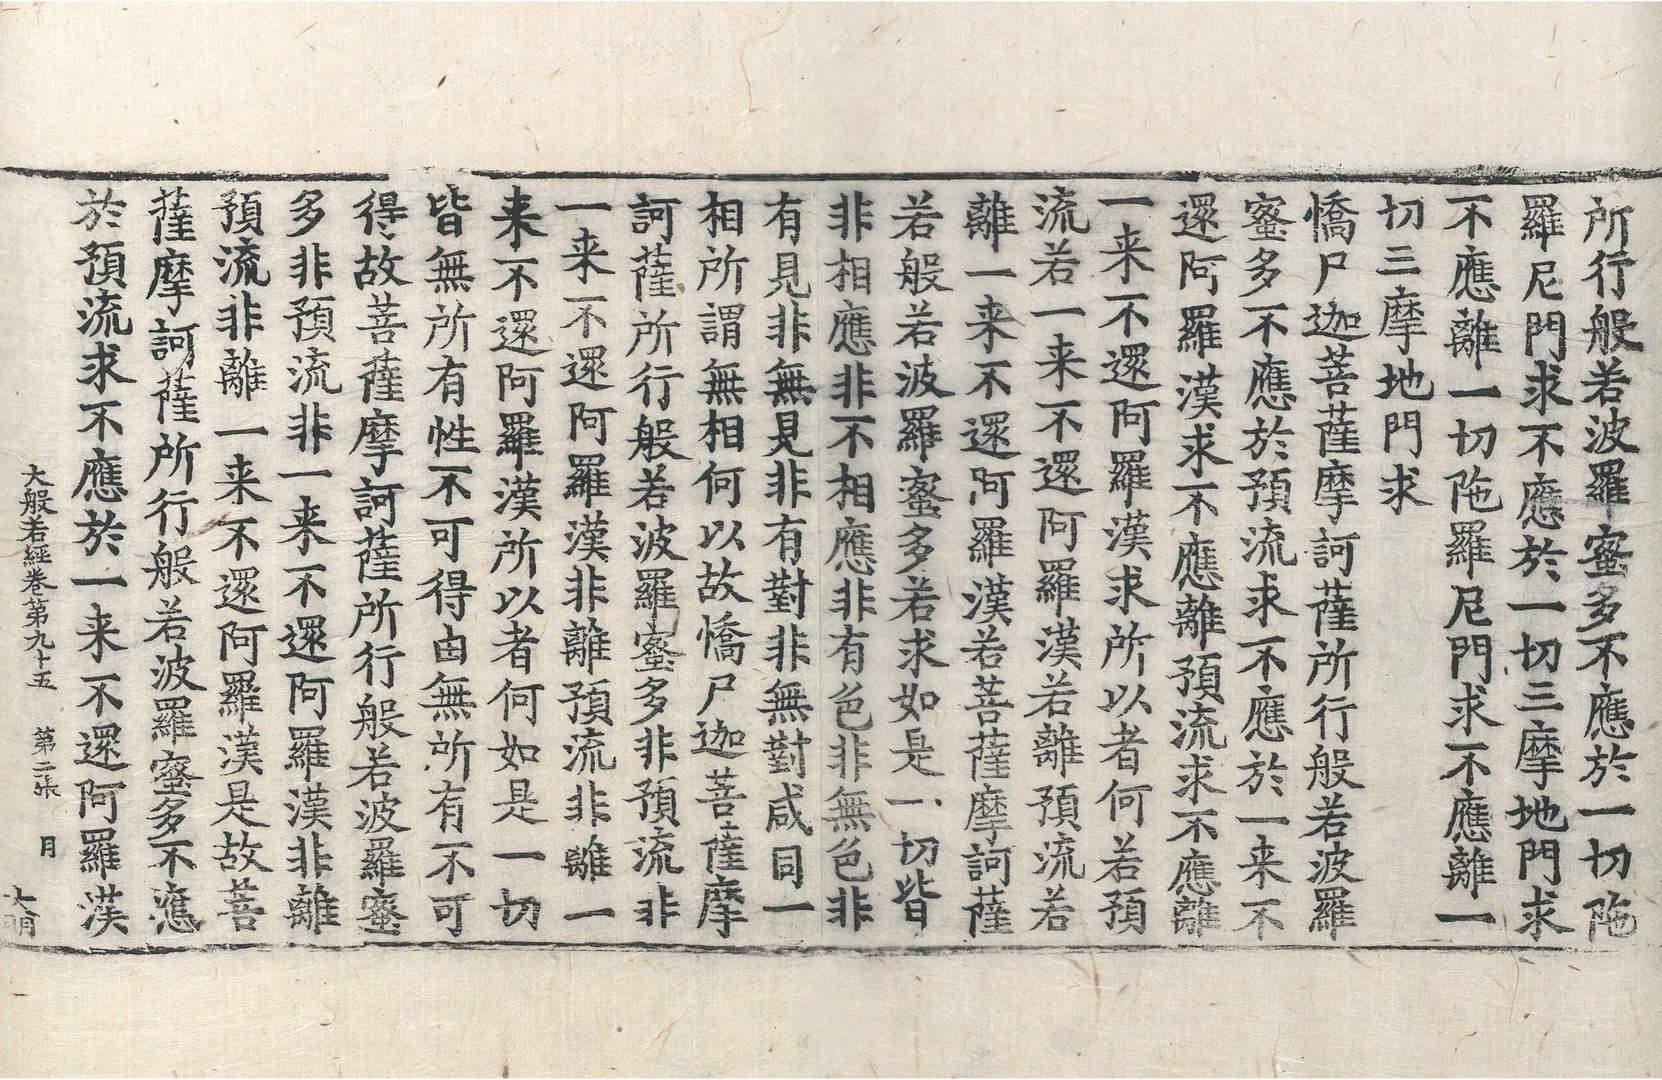 所行般若波羅蜜多不應於一切陁
羅尼門求不應於一切三摩地門求
不應離一切陁羅尼門求不應離一
切三摩地門求
憍尸迦菩薩摩訶薩所行般若波羅
蜜多不應於預流求不應於一来不
還阿羅漢求不應離預流求不應離
一来不還阿羅漢求所以者何若預
流若一来不還阿羅漢若離預流若
離一来不還阿羅漢若菩薩摩訶薩
若般若波羅蜜多若求如是一切皆
非相應非不相應非有色非無色非
有見非無見非有對非無對咸同一
相所謂無相何以故憍尸迦菩薩摩
訶薩所行般若波羅蜜多非預流非
一来不還阿羅漢非離預流非離一
来不還阿羅漢所以者何如是一切
皆無所有性不可得由無所有不可
得故菩薩摩訶薩所行般若波羅蜜
多非預流非一来不還阿羅漢非離
預流非離一来不還阿羅漢是故菩
薩摩訶薩所行般若波羅蜜多不應
於預流求不應於一来不還阿羅漢
大般若經卷第九十五 第二張 月 大明